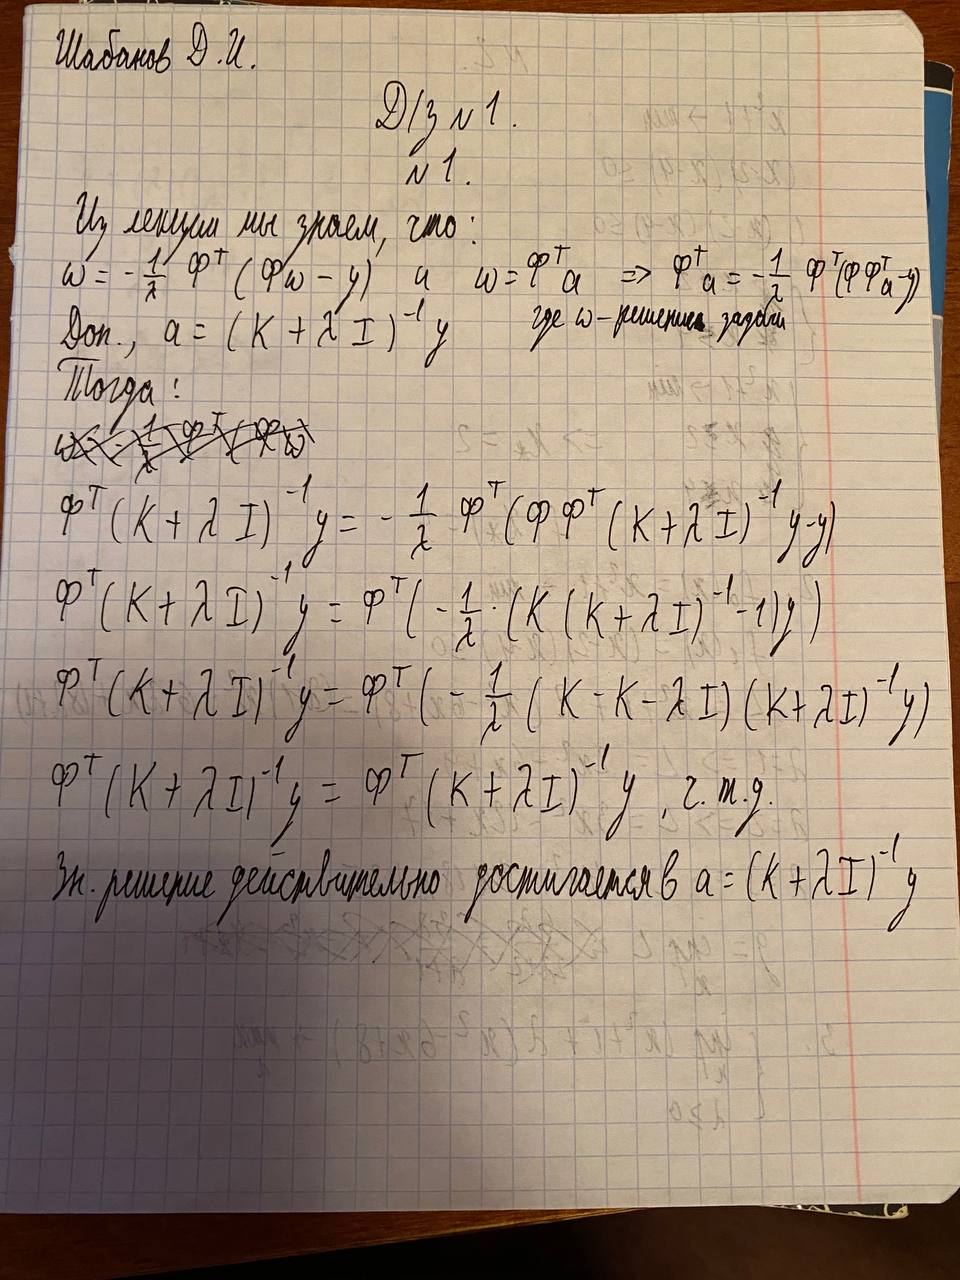 Шабанов Д.И.
Д/з №1.
№1.
Из лекции мы знаем, что:
w = -1/λ Φ^T (Φw - y) и w = Φ^T a => Φ^T a = -1/λ Φ^T(ΦΦ^T a - y)
где w - решение задачи
Доп., a = (K + λI)^-1 y
Тогда:
Φ^T (K + λI)^-1 y = -1/λ Φ^T (ΦΦ^T (K + λI)^-1 y - y)
Φ^T (K + λI)^-1 y = Φ^T (-1/λ · (K (K + λI)^-1 - 1) y)
Φ^T (K + λI)^-1 y = Φ^T (-1/λ (K - K - λI) (K + λI)^-1 y)
Φ^T (K + λI)^-1 y = Φ^T (K + λI)^-1 y, ч.т.д.
Зн. решение действительно достигается в a = (K + λI)^-1 y